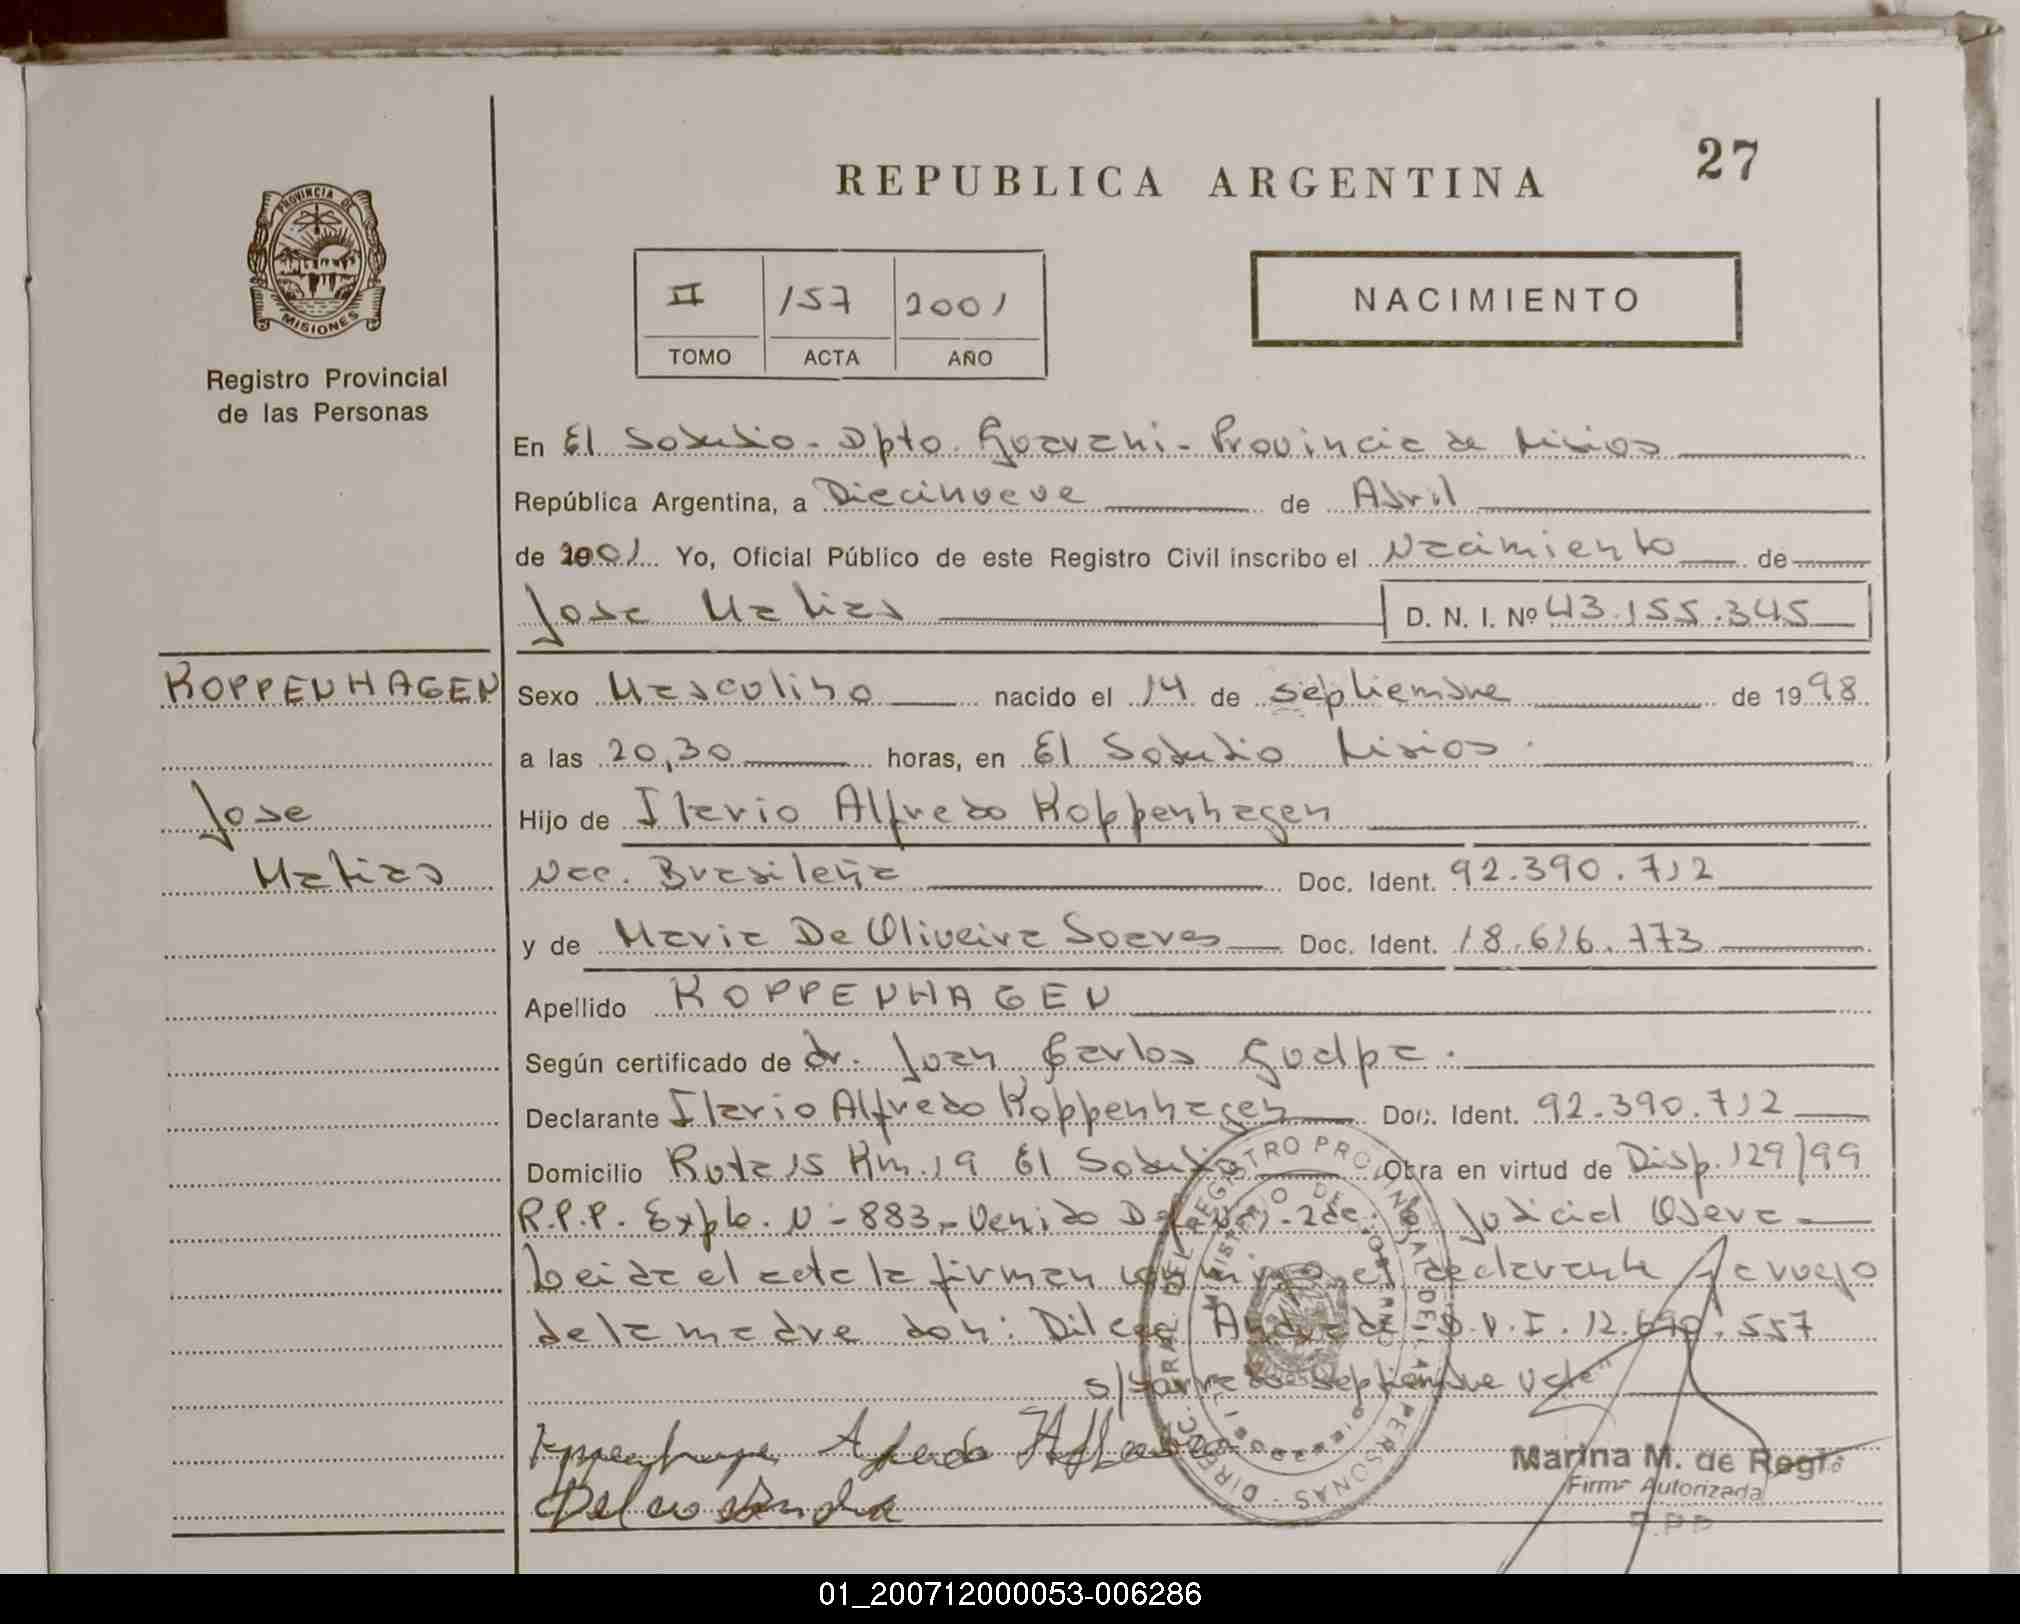 REPUBLICA ARGENTINA
27
PROVINCIA DE
MISIONES
Registro Provincial
de las Personas
II 157 2001
TOMO ACTA AÑO
NACIMIENTO
En El Soberbio - Dpto. Guarani - Provincia de Misios
República Argentina, a Diecinueve de Abril
de 2001 Yo, Oficial Público de este Registro Civil inscribo el Nacimiento de
Jose Matias D. N. I. Nº 43.155.345
KOPPENHAGEN
Sexo Masculino nacido el 14 de septiembre de 1998
a las 20,30 horas, en El Soberbio Misios.
Jose
Hijo de Ilario Alfredo Koppenhagen
Matias
Nac. Brasileña Doc. Ident. 92.390.712
y de Maria De Oliveira Soares Doc. Ident. 18.616.773
Apellido KOPPENHAGEN
Según certificado de dr. Juan Carlos Guelpa.
Declarante Ilario Alfredo Koppenhagen Doc. Ident. 92.390.712
Domicilio Ruta 15 Km. 19 El Soberbio Obra en virtud de Disp. 129/99
R.P.P. Expte. N - 883 - Venido Def. Judicial Obera
Leida el acta la firman conmigo el declarante y a ruego
de la madre don: Andrade - D.N.I. 12.690.557
s/ septiembre Vale"
Marina M. de Regis
Firma Autorizada
R.P.P
01_200712000053-006286